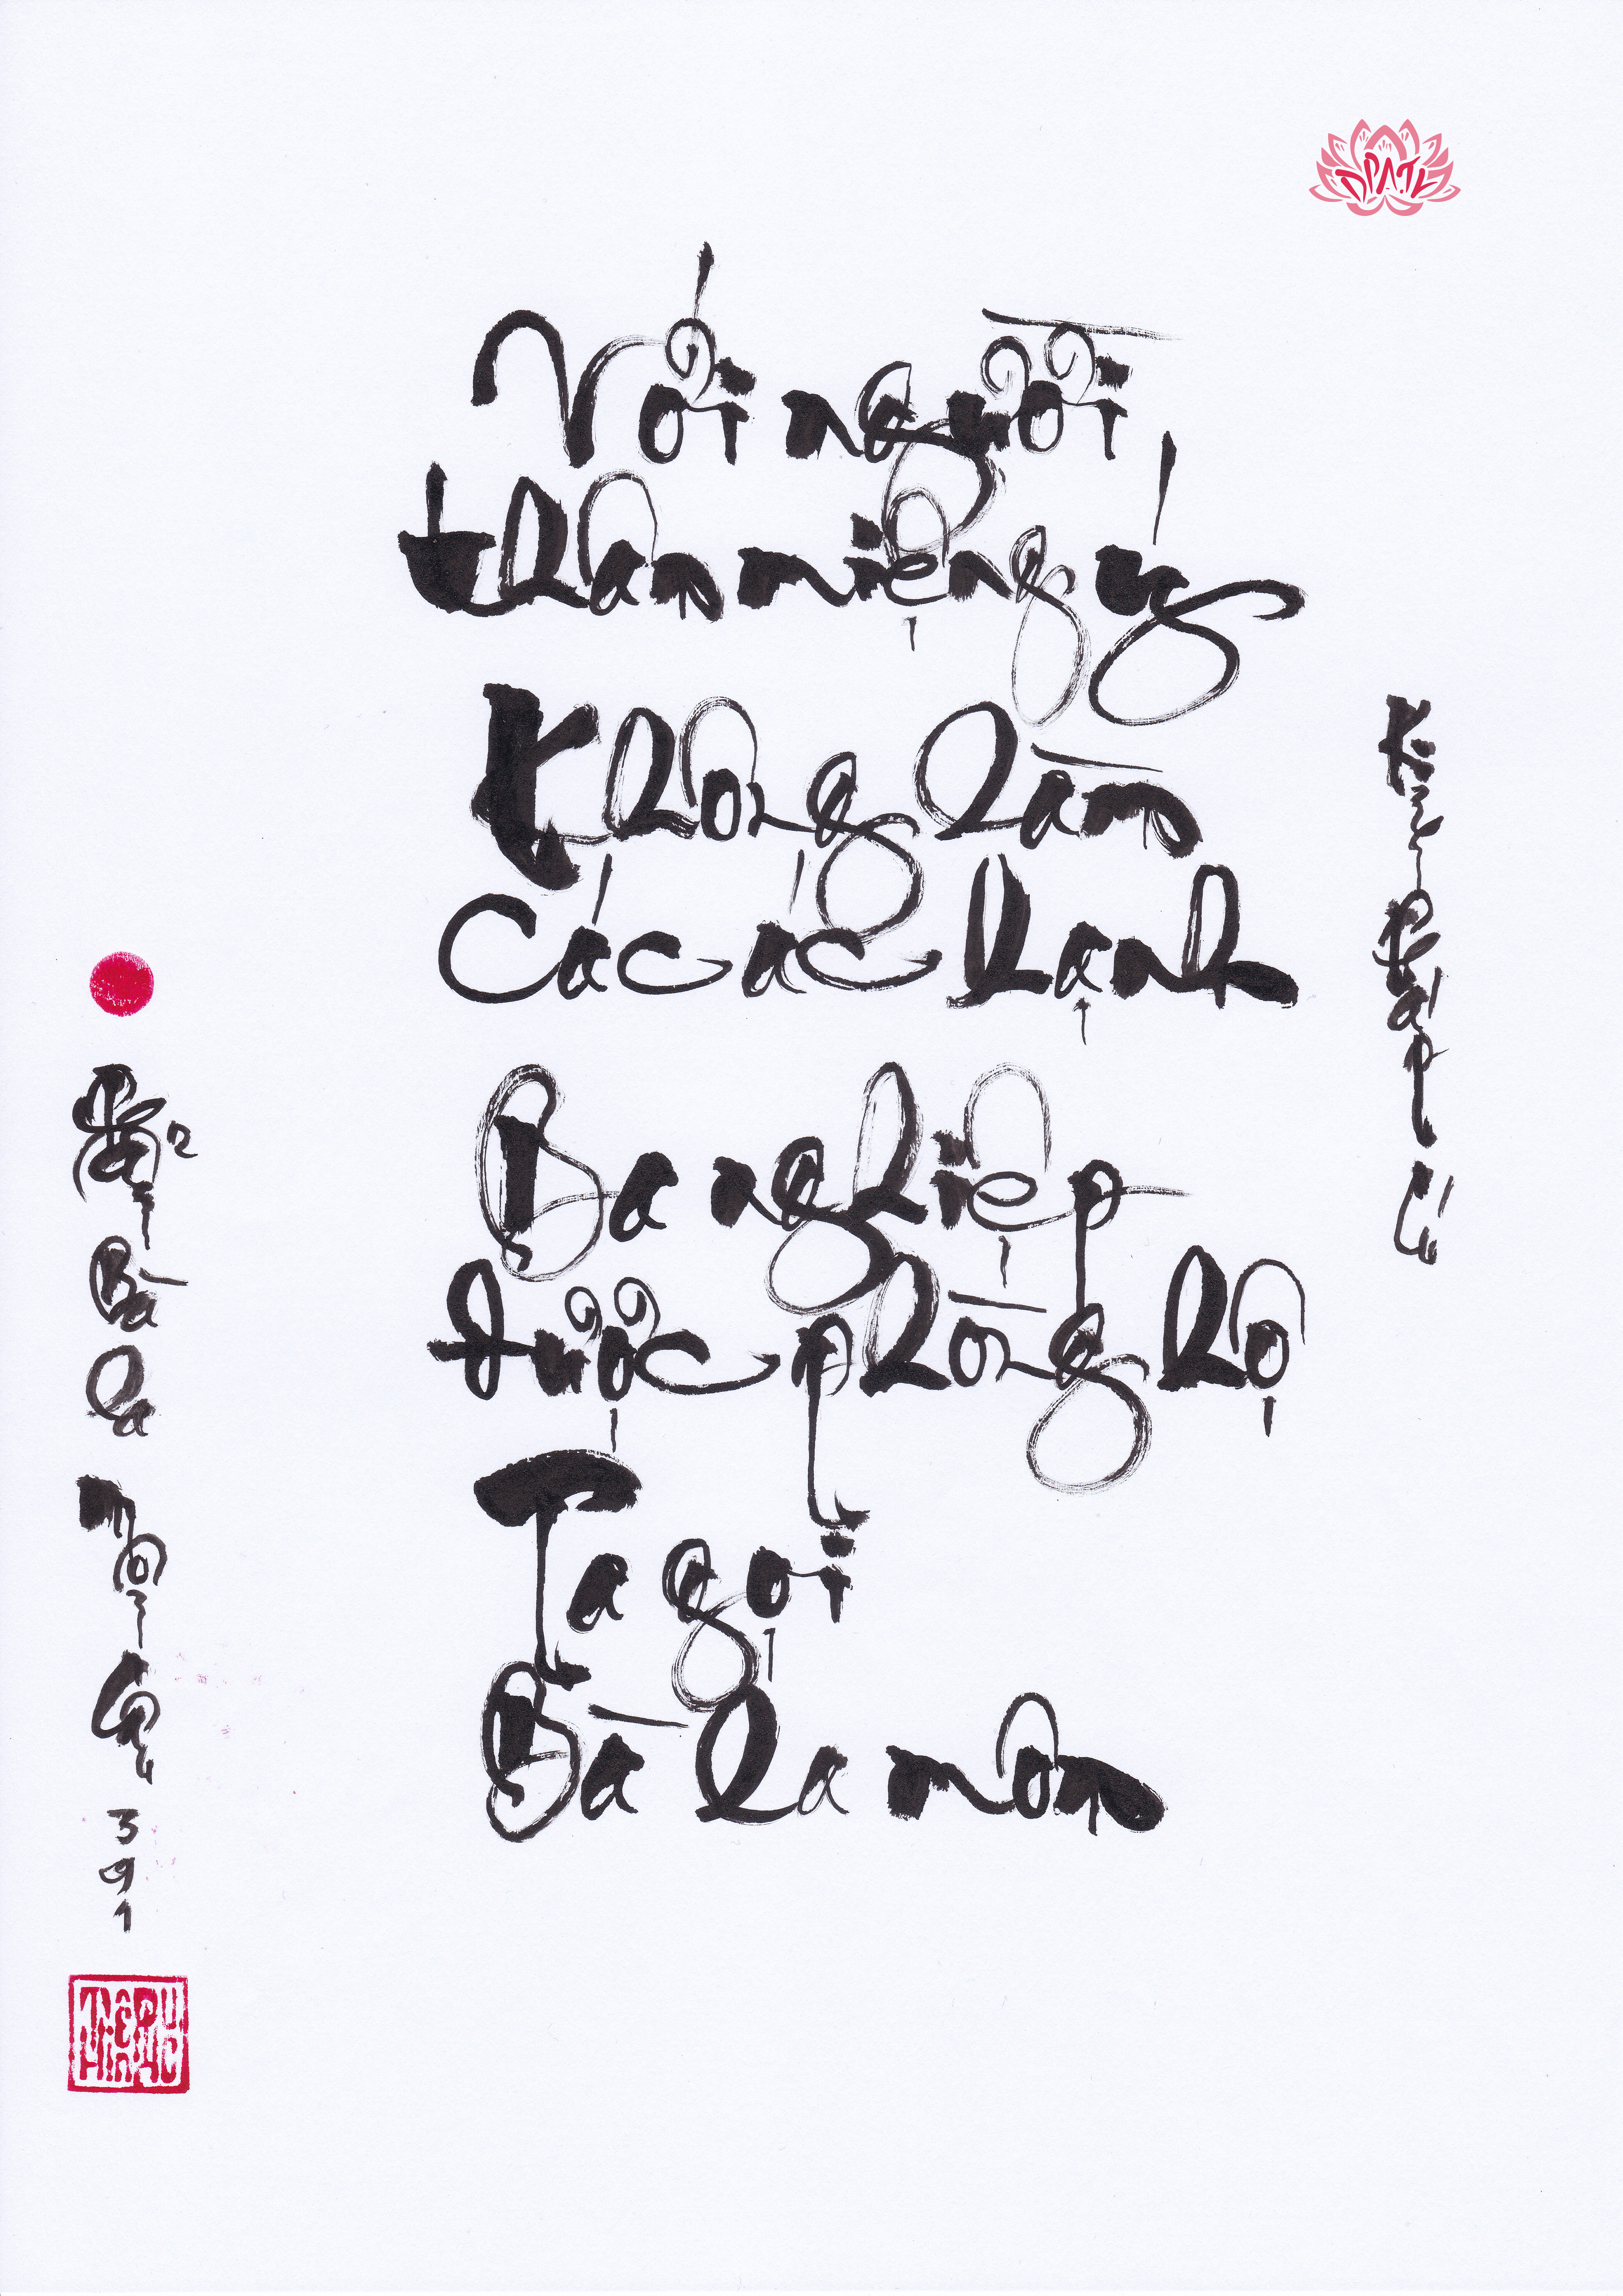 Với người
thân miệng ý
Không làm
Các ác hạnh
Ba nghiệp
được phòng hộ
Ta gọi
Bà la môn
Kinh Pháp Cú
Phẩm Bà La Môn Câu 391